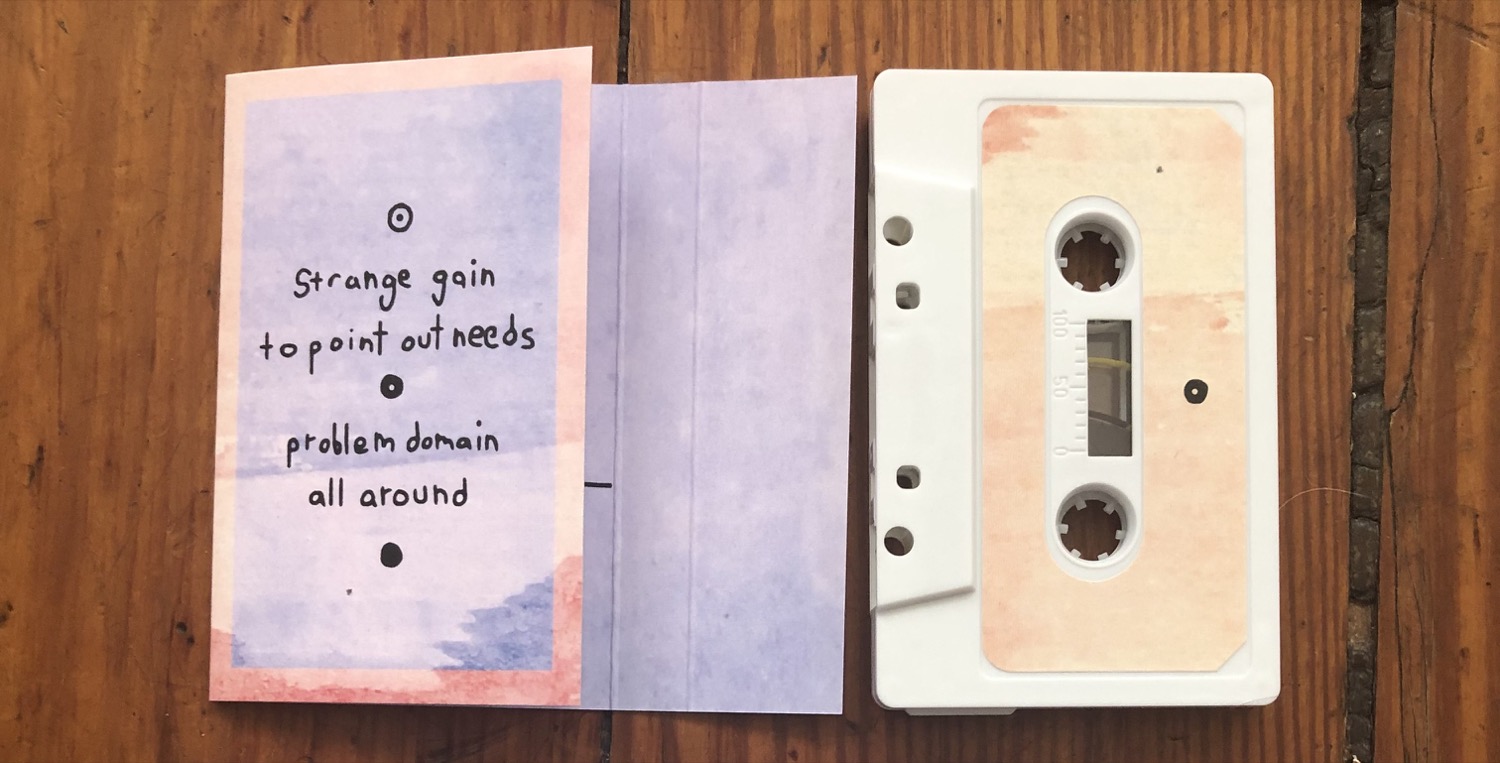 Strange gain
to point out needs
problem domain
all around
100
50
0